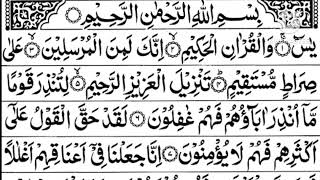 بِسْمِ اللهِ الرَّحْمٰنِ الرَّحِيْمِ
يٰسٓ ۚ﴿۱﴾ وَالْقُرْاٰنِ الْحَكِيْمِ ۙ﴿۲﴾ اِنَّكَ لَمِنَ الْمُرْسَلِيْنَ ۙ﴿۳﴾ عَلٰى
صِرَاطٍ مُّسْتَقِيْمٍ ؕ﴿۴﴾ تَنْزِيْلَ الْعَزِيْزِ الرَّحِيْمِ ۙ﴿۵﴾ لِتُنْذِرَ قَوْمًا
مَّاۤ اُنْذِرَ اٰبَآؤُهُمْ فَهُمْ غٰفِلُوْنَ ﴿۶﴾ لَقَدْ حَقَّ الْقَوْلُ عَلٰٓى
اَكْثَرِهِمْ فَهُمْ لَا يُؤْمِنُوْنَ ﴿۷﴾ اِنَّا جَعَلْنَا فِيْۤ اَعْنَاقِهِمْ اَغْلٰلًا